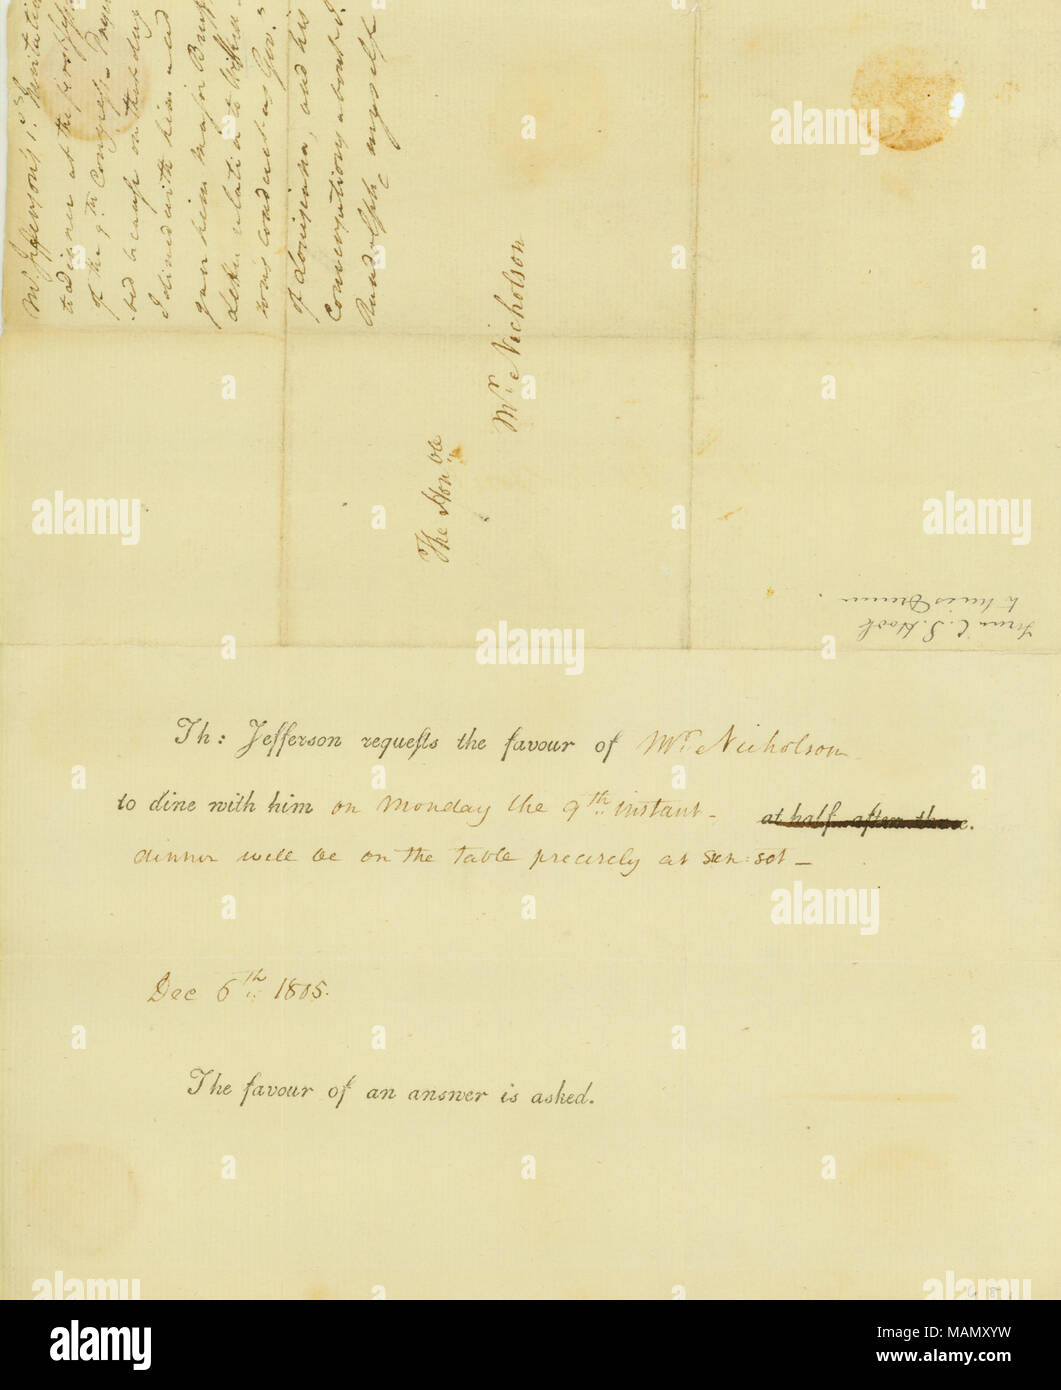 Mr. Jefferson's 1st. Invitation
to dinner at the first Sess
of the 9th Congress
-ted because on that day
I dined with him and
gave him Major Bruff
letter relation to Wilkin-
sons conduct as Gov.
of Louisiana, and his
Conversations about J.
Randolph, myself
The Hon.ble
Mr. Nicholson
From C. S. Hook
to
Th: Jefferson requeſts the favour of Mr. Nicholson
to dine with him on Monday the 9th instant - at half after three.
dinner will be on the table precisely at sun: set -
Dec 6th 1805.
The favour of an answer is asked.
alamy
Image ID: MAMXYW
www.alamy.com